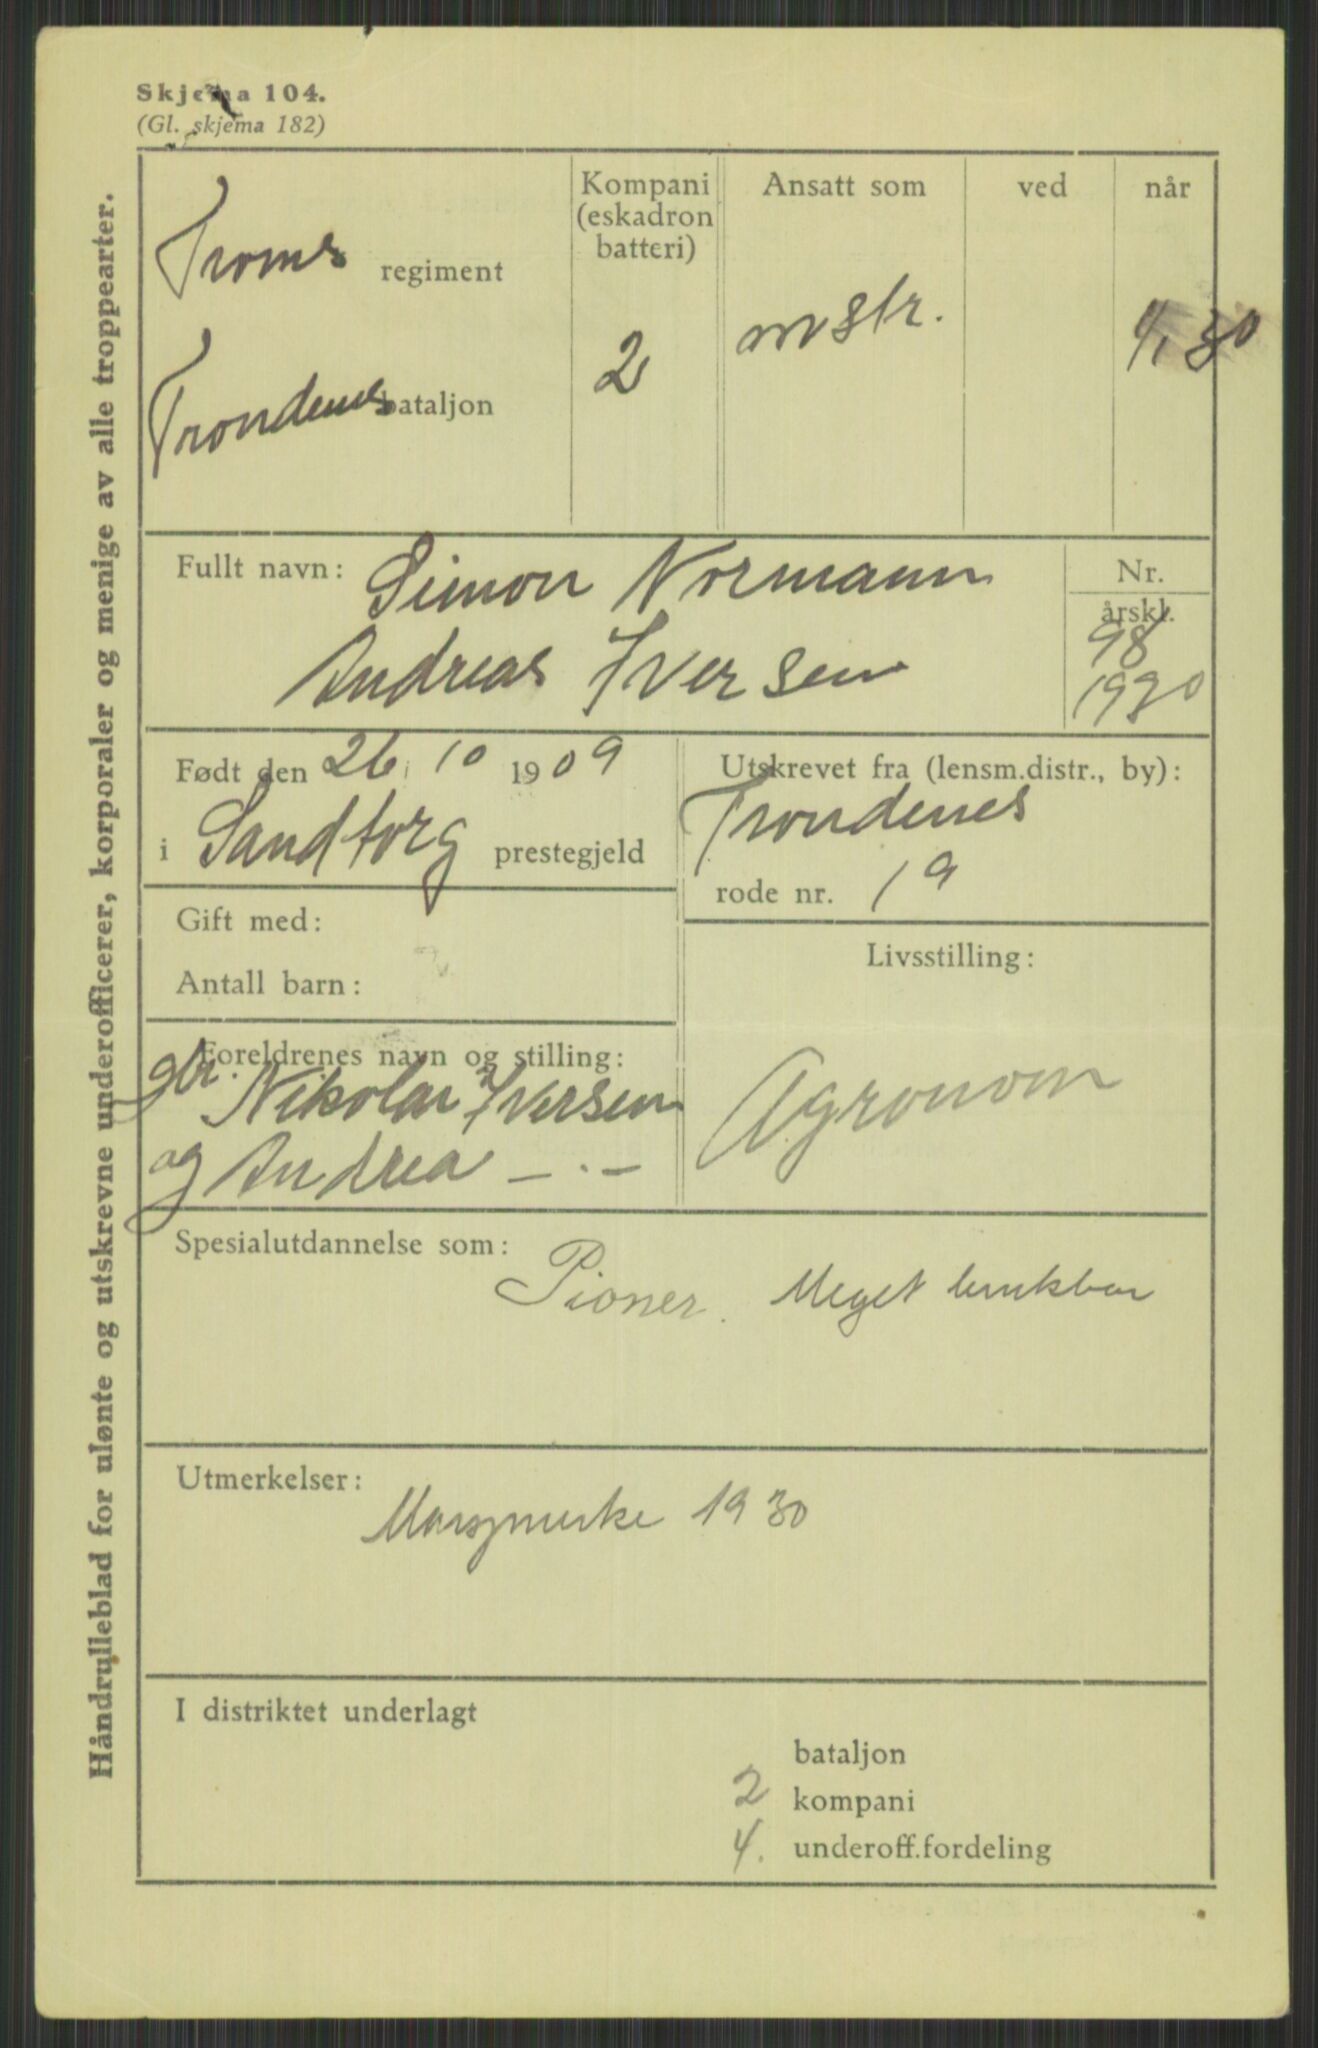 Skjema 104.
(Gl. skjema 182)
Håndrulleblad for ulønte og utskrevne underofficerer, korporaler og menige av alle troppearter.
Troms regiment
Trondenes bataljon
Kompani
(eskadron
batteri)
2
Ansatt som
mstr.
ved
når
1/1 30
Fullt navn: Simon Normann
Andreas Iversen
Nr.
årskl.
98
1930
Født den 26. 10 1909
i Sandtorg prestegjeld
Utskrevet fra (lensm.distr., by):
Trondenes
rode nr. 19
Gift med:
Antall barn:
Livsstilling:
Agronom
Foreldrenes navn og stilling:
gbr. Nikolai Iversen
og Andrea — . —
Spesialutdannelse som:
Pioner. Meget brukbar
Utmerkelser:
Marsjmerke 1930
I distriktet underlagt
bataljon
2 kompani
4. underoff.fordeling